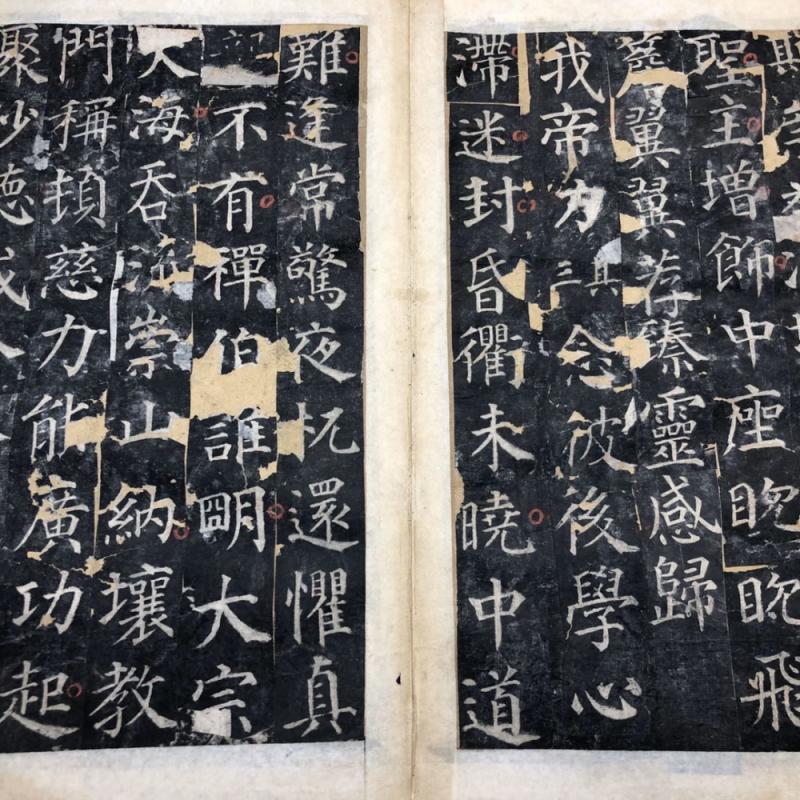 聖主增飾中座眈眈飛
簷翼翼荐臻靈感歸
我帝力其三念彼後學心
滯迷封昏衢未曉中道
難逢常驚夜枕還懼真
龍不有禪伯誰明大宗
大海吞流崇山納壤教
門稱頓慈力能廣功起
聚沙德成